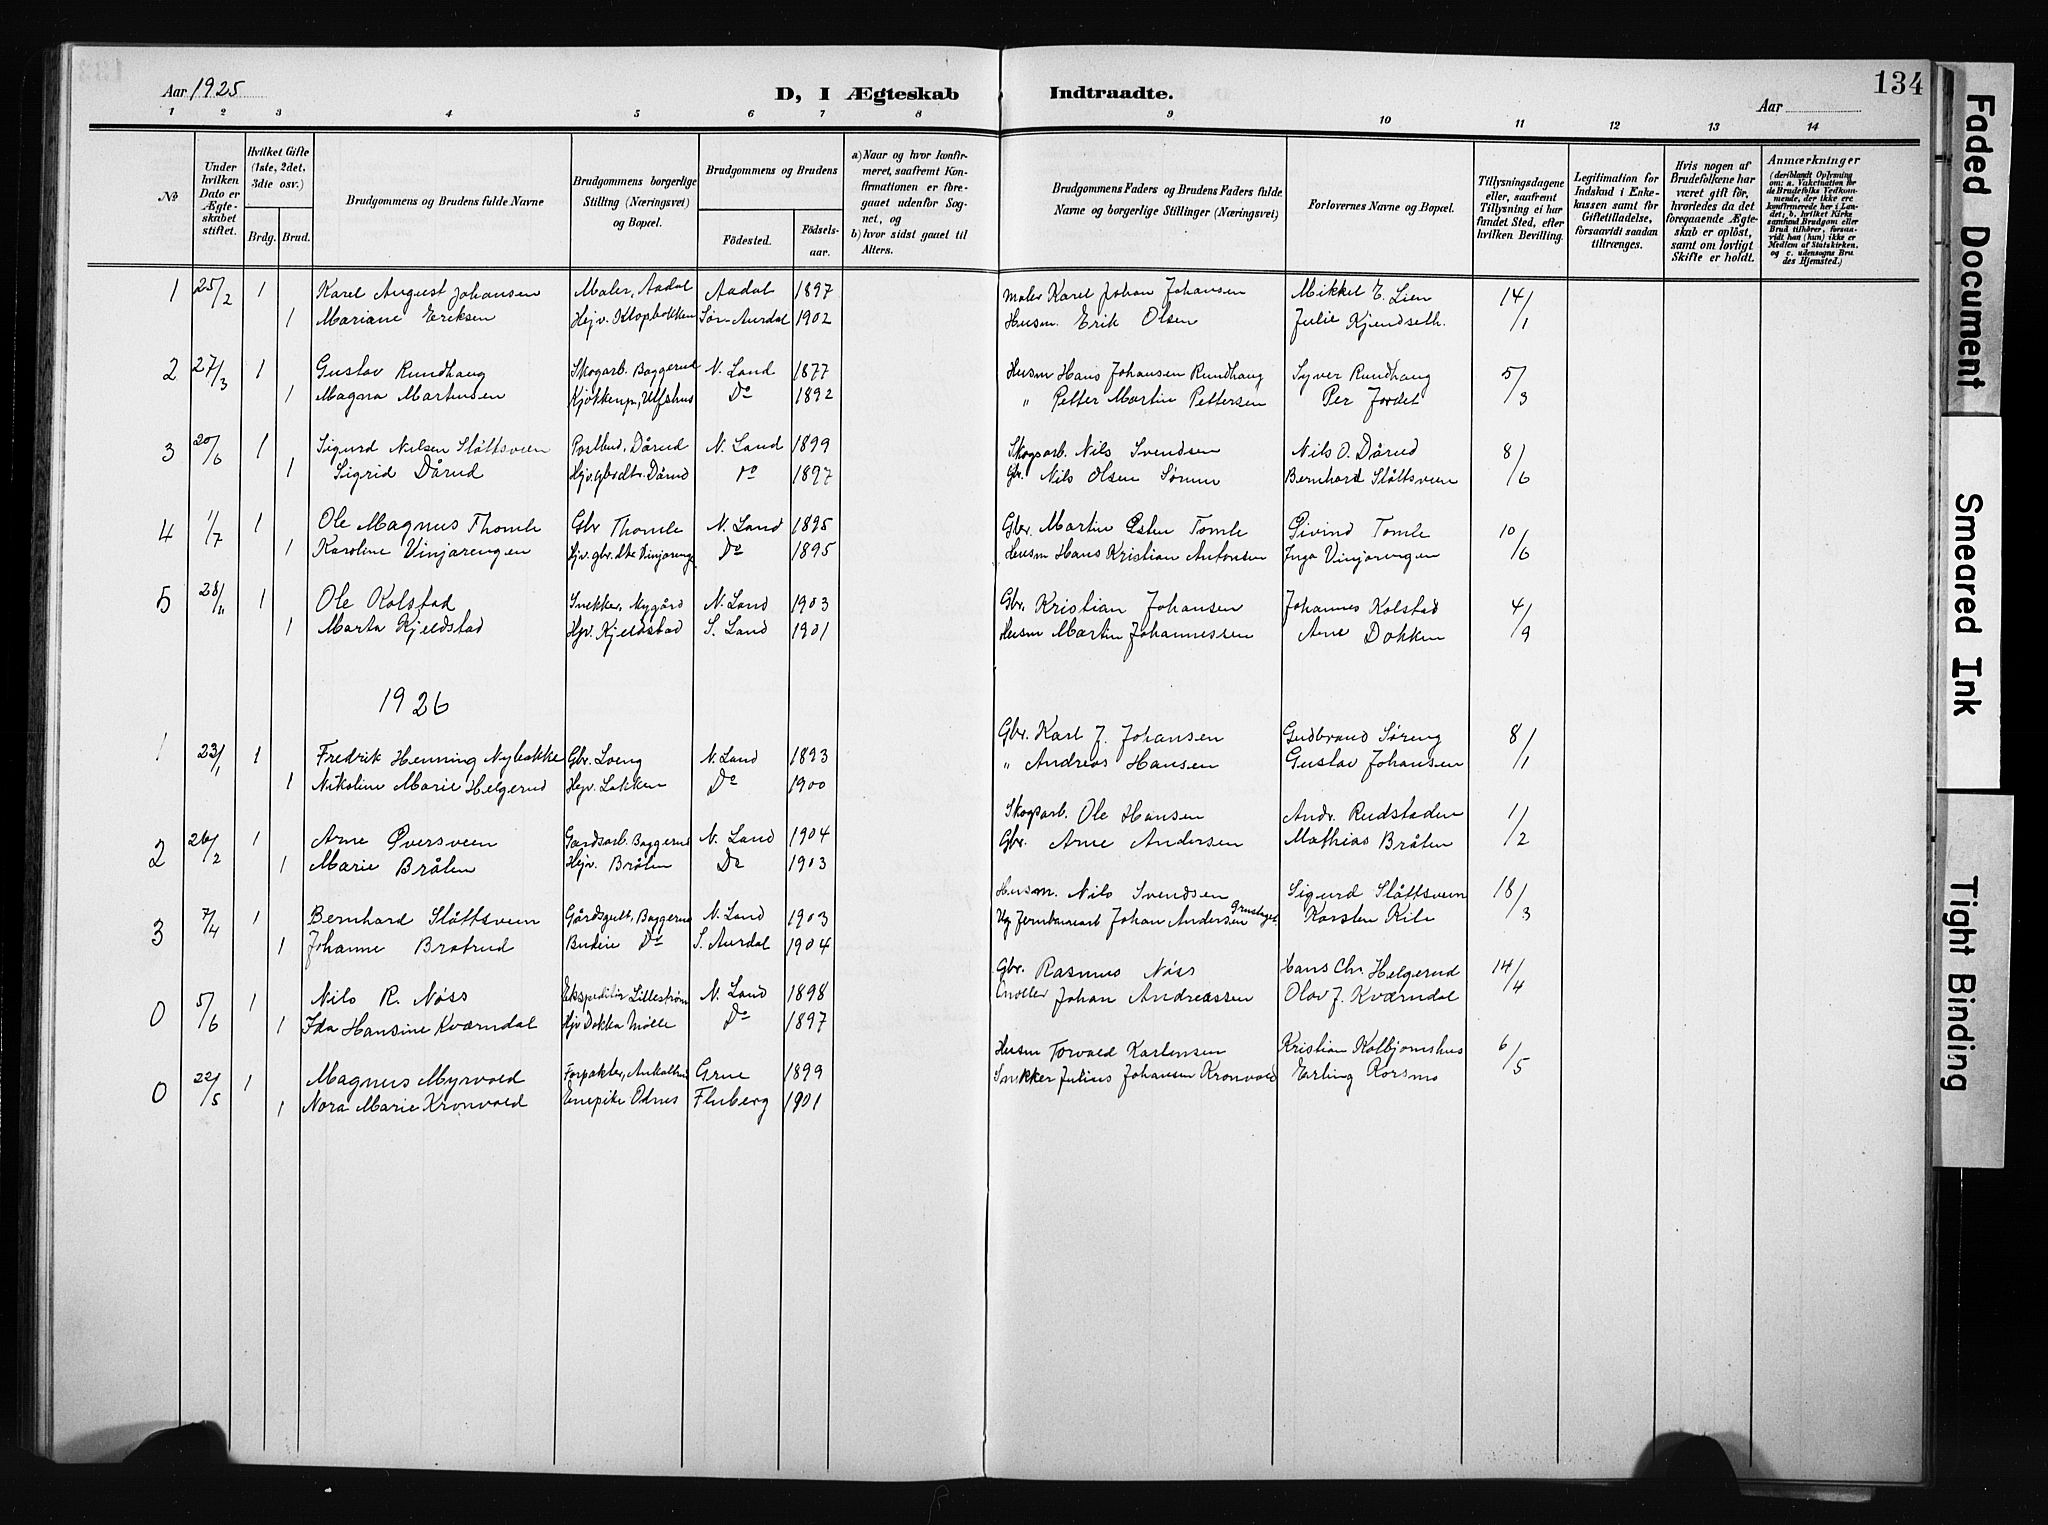 134
Aar 1925
D, I Ægteskab Indtraadte.
Aar
1 2 3 4 5 6 7 8 9 10 11 12 13 14
No
Under hvilken Dato er Ægteskabet stiftet.
Hvilket Gifte (1ste, 2det, 3die osv.)
Brdg. Brud.
Brudgommens og Brudens fulde Navne
Brudgommens borgerlige Stilling (Næringsvei) og Bopæl.
Brudgommens og Brudens
Fødested. Fødselsaar.
a) Naar og hvor konfirmeret, saafremt Konfirmationen er foregaaet udenfor Sognet, og
b) hvor sidst gaaet til Alters.
Brudgommens Faders og Brudens Faders fulde Navne og borgerlige Stillinger (Næringsvei)
Forlovernes Navne og Bopæl.
Tillysningsdagene eller, saafremt Tillysning ei har fundet Sted, efter hvilken Bevilling.
Legitimation for Indskud i Enkekassen samt for Giftetilladelse, forsaavidt saadan tiltrænges.
Hvis nogen af Brudefolkene har været gift før, hvorledes da det foregaaende Ægteskab er opløst, samt om lovligt Skifte er holdt.
Anmærkninger (deriblandt Oplysning om: a. Vakcination for de Brudefolks Vedkommende, der ikke ere konfirmerede her i Landet, b. hvilket Kirkesamfund Brudgom eller Brud tilhører, forsaavidt han (hun) ikke er Medlem af Statskirken, og c. udensogns Brudes Hjemsted.)
1 25/2 1 Karel August Johansen Maler, Aadal Aadal 1897 Maler Karel Johan Johansen Mikkel E. Lien 14/1
1 Mariane Eriksen Hejv. Klopbakken Søn-Aurdal 1902 Husm. Erik Olsen Julie Kjendseth.
2 27/3 1 Gustav Rundhaug Skogarb. Baggerud N. Land 1877 Husm Hans Johansen Rundhaug Syver Rundhaug 5/3
1 Magna Martinsen Kjøkkenp, Ulfshus Do 1892 " Petter Martin Pettersen Per Jordet
3 20/6 1 Sigurd Nilsen Slåttsveen Postbud, Dårud N. Land 1899 Skogsarb. Nils Svendsen Nils O. Dårud 8/6
1 Sigrid Dårud Hjv. gbsdtr. Dårud Do 1897 Gbr. Nils Olsen Bernhard Slåttsveen
4 1/7 1 Ole Magnus Thomle Gbr Thomle N. Land 1895 Gbr. Martin Østen Tomle Øivind Tomle 10/6
1 Karoline Vinjarengen Hjv. gbr. dtr Vinjareng. Do 1895 Husm Hans Kristian Antonsen Inga Vinjarengen
5 28/11 1 Ole Kolstad Snekker, Nygård N. Land 1903 Gbr. Kristian Johansen Johannes Kolstad 4/9
1 Marta Kjeldstad Hjv. Kjeldstad S. Land 1901 Husm Martin Johannessen Arne Dokken
1926
1 23/1 1 Fredrik Henning Nybakke Gbr. Loeng N. Land 1893 Gbr. Karl J. Johansen Gudbrand Søreng 8/1
1 Nikoline Marie Helgerud Hejv. Lakken Do 1900 " Andreas Hansen Gustav Johansen
2 26/2 1 Arne Øversveen Gardsarb. Baggerud N. Land 1904 Skogsarb. Ole Hansen Andr. Rudstaden 1/2
1 Marie Bråten Hejv. Bråten Do 1903 Gbr. Arne Andersen Mathias Bråten
3 7/4 1 Bernhard Slåttsveen Gårdsgutt, Baggerud N. Land 1903 Husm. Nils Svendsen Sigurd Slåttsveen 18/3
1 Johanne Bratrud Budeie Do S. Aurdal 1904 Johan Andersen Karsten Kile
0 5/6 1 Nils R. Nøss Ekspeditør Lillestrøm N. Land 1898 Gbr. Rasmus Nøss Hans Chr. Helgerud 14/4
1 Ida Hansine Kværndal Hjv Dokka Mølle Do 1897 Møller Johan Andreassen Olav J. Kværndal
0 22/5 1 Magnus Myrvold Forpakter, Grue 1899 Husm Torvald Karlensen Kristian Kolbjørnshus 6/5
1 Nora Marie Kronvold Enepike Odnes Fluberg 1901 Snekker Julius Johansen Kronvold Erling Korsmo
Faded Document
Smeared Ink
Tight Binding